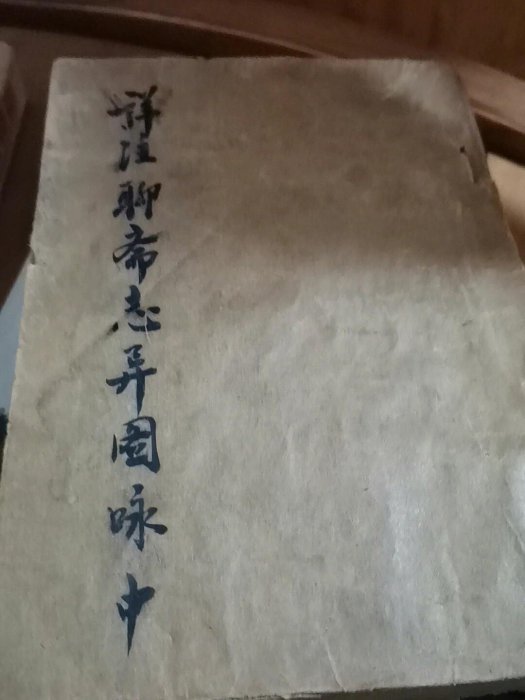 详注聊斋志异图咏中